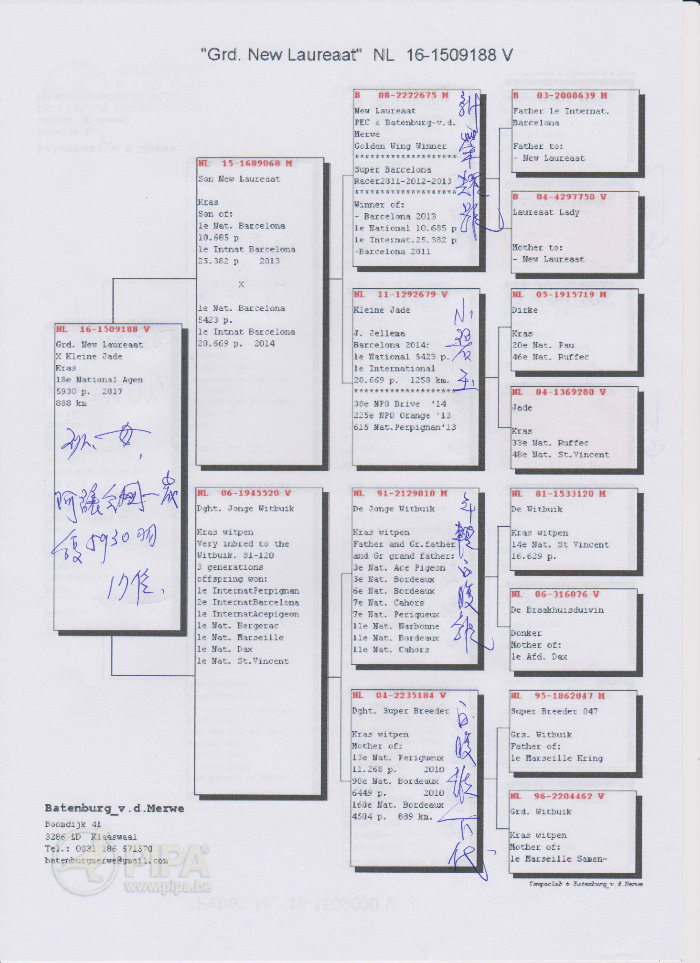 "Grd. New Laureaat" NL 16-1509188 V
NL 16-1509188 V
Grd. New Laureaat
X Kleine Jade
Kras
18e National Agen
5930 p. 2017
888 km
5930羽
18位
NL 15-1689868 M
Son New Laureaat
Kras
Son of:
1e Nat. Barcelona
10.685 p
1e Intnat Barcelona
25.382 p 2013
X
1e Nat. Barcelona
5423 p.
1e Intnat Barcelona
20.669 p. 2014
NL 06-1945520 V
Dght. Jonge Witbuik
Kras witpen
Very inbred to the
Witbuik. 81-120
3 generations
offspring won:
1e InternatPerpignan
2e InternatBarcelona
1e InternatAcepigeon
1e Nat. Bergerac
1e Nat. Marseille
1e Nat. Dax
1e Nat. St.Vincent
B 08-2222675 M
New Laureaat
PEC & Batenburg-v.d.
Merwe
Golden Wing Winner
********************
Super Barcelona
Racer2011-2012-2013
********************
Winner of:
- Barcelona 2013
1e National 10.685 p
1e Internat.25.382 p
-Barcelona 2011
NL 11-1292679 V
Kleine Jade
J. Jellema
Barcelona 2014:
1e National 5423 p.
1e International
20.669 p. 1258 km.
********************
38e NPO Brive '14
225e NPO Orange '13
615 Nat.Perpignan'13
小碧玉
NL 91-2129010 M
De Jonge Witbuik
Kras witpen
Father and Gr.father
and Gr grand father:
3e Nat. Ace Pigeon
3e Nat. Bordeaux
6e Nat. Bordeaux
7e Nat. Cahors
7e Nat. Perigueux
11e Nat. Narbonne
11e Nat. Bordeaux
11e Nat. Cahors
年輕白腹號
NL 04-2235184 V
Dght. Super Breeder
Kras witpen
Mother of:
13e Nat. Perigueux
11.268 p. 2010
90e Nat. Bordeaux
6449 p. 2010
160e Nat. Bordeaux
4504 p. 889 km.
白腹號下代
B 03-2008639 M
Father le Internat.
Barcelona
Father to:
- New Laureaat
B 04-4297750 V
Laureaat Lady
Mother to:
- New Laureaat
NL 05-1915719 M
Dirke
Kras
20e Nat. Pau
46e Nat. Ruffec
NL 04-1369280 V
Jade
Kras
33e Nat. Ruffec
48e Nat. St.Vincent
NL 81-1533120 M
De Witbuik
Kras witpen
14e Nat. St Vincent
16.629 p.
NL 86-316076 V
De Braakhuisduivin
Donker
Mother of:
1e Afd. Dax
NL 95-1862047 M
Super Breeder 047
Grs. Witbuik
Father of:
1e Marseille Kring
NL 96-2204462 V
Grd. Witbuik
Kras witpen
Mother of:
1e Marseille Samen-
Batenburg_v.d.Merwe
Boomdijk 41
3286 LD Klaaswaal
Tel.: 0031 186 571570
batenburgmerwe@gmail.com
PIPA
www.pipa.be
Compuclub © Batenburg_v.d.Merwe